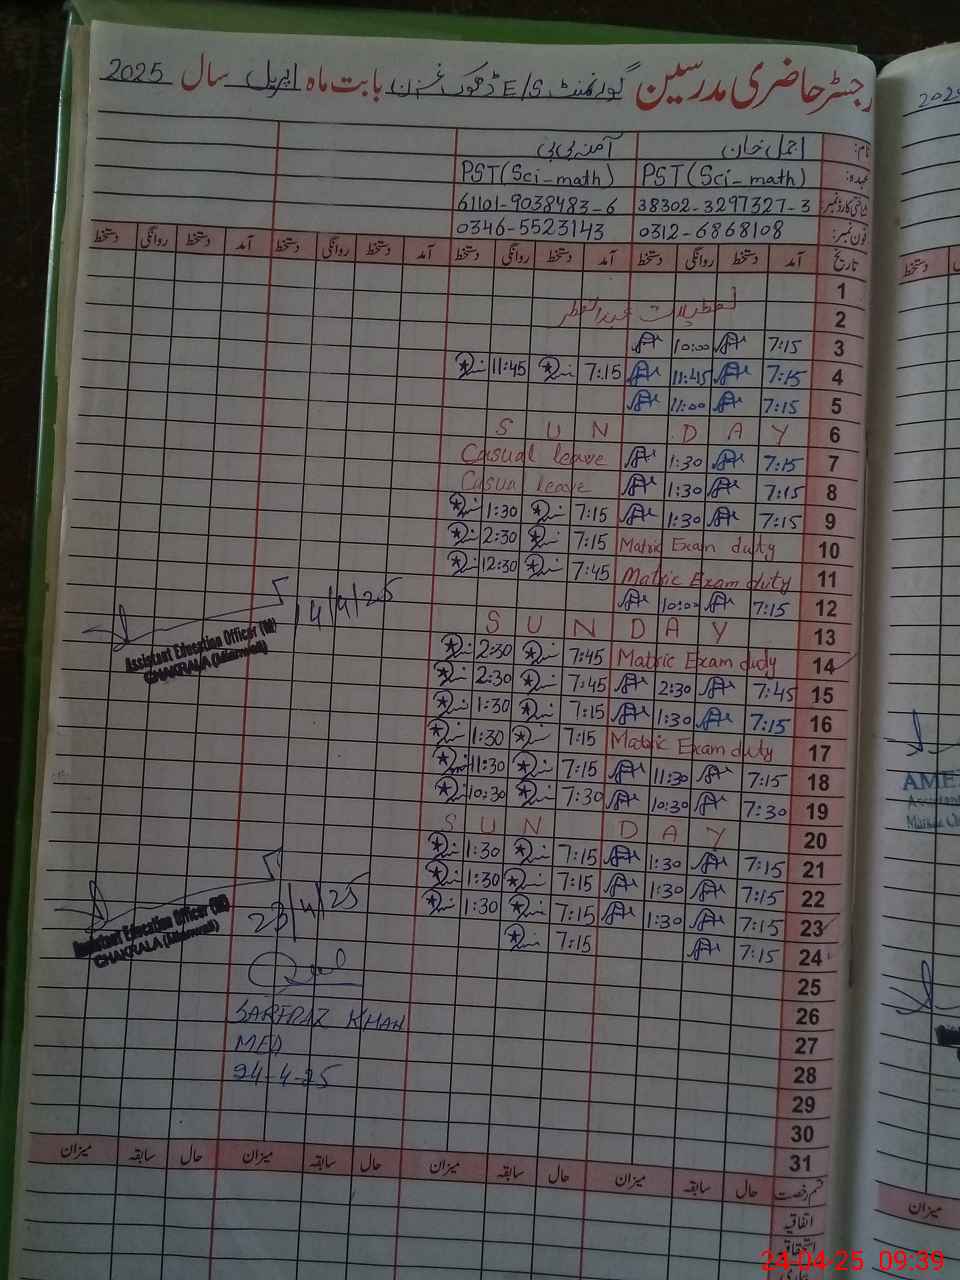 رجسٹر حاضری مدرسین گورنمنٹ E/S ڈھوک بابت ماہ اپریل سال 2025
نام: اجمل خان آمنہ بی بی
عہدہ: PST (Sci-math) PST (Sci-math)
شناختی کارڈ نمبر: 38302-3297327-3 61101-9038483-6
فون نمبر: 0312-6868108 0346-5523143
تاریخ آمد دستخط روانگی دستخط آمد دستخط روانگی دستخط آمد دستخط روانگی دستخط آمد دستخط روانگی دستخط
1
2 تعطیلات عیدالفطر
3 7:15 10:00
4 7:15 11:45 7:15 11:45
5 7:15 11:00
6 S U N D A Y
7 7:15 1:30 Casual leave
8 7:15 1:30 Casual leave
9 7:15 1:30 7:15 1:30
10 Matric Exam duty 7:15 2:30
11 Matric Exam duty 7:45 12:30
12 7:15 10:00
13 S U N D A Y
14 Matric Exam duty 7:45 2:30
15 7:45 2:30 7:45 2:30
16 7:15 1:30 7:15 1:30
17 Matric Exam duty 7:15 1:30
18 7:15 11:30 7:15 11:30
19 7:30 10:30 7:30 10:30
20 S U N D A Y
21 7:15 1:30 7:15 1:30
22 7:15 1:30 7:15 1:30
23 7:15 1:30 7:15 1:30
24 7:15 7:15
25
26
27
28
29
30
31
14/4/25
Assistant Education Officer (M)
CHAKRALA (Mianwali)
23/4/25
Assistant Education Officer (M)
CHAKRALA (Mianwali)
SARFRAZ KHAN
MEA
24-4-25
قسم رخصت حال سابقہ میزان حال سابقہ میزان حال سابقہ میزان حال سابقہ میزان
اتفاقیہ
استحقاقی
2025
دستخط
AME
میزان
24-04-25 09:39